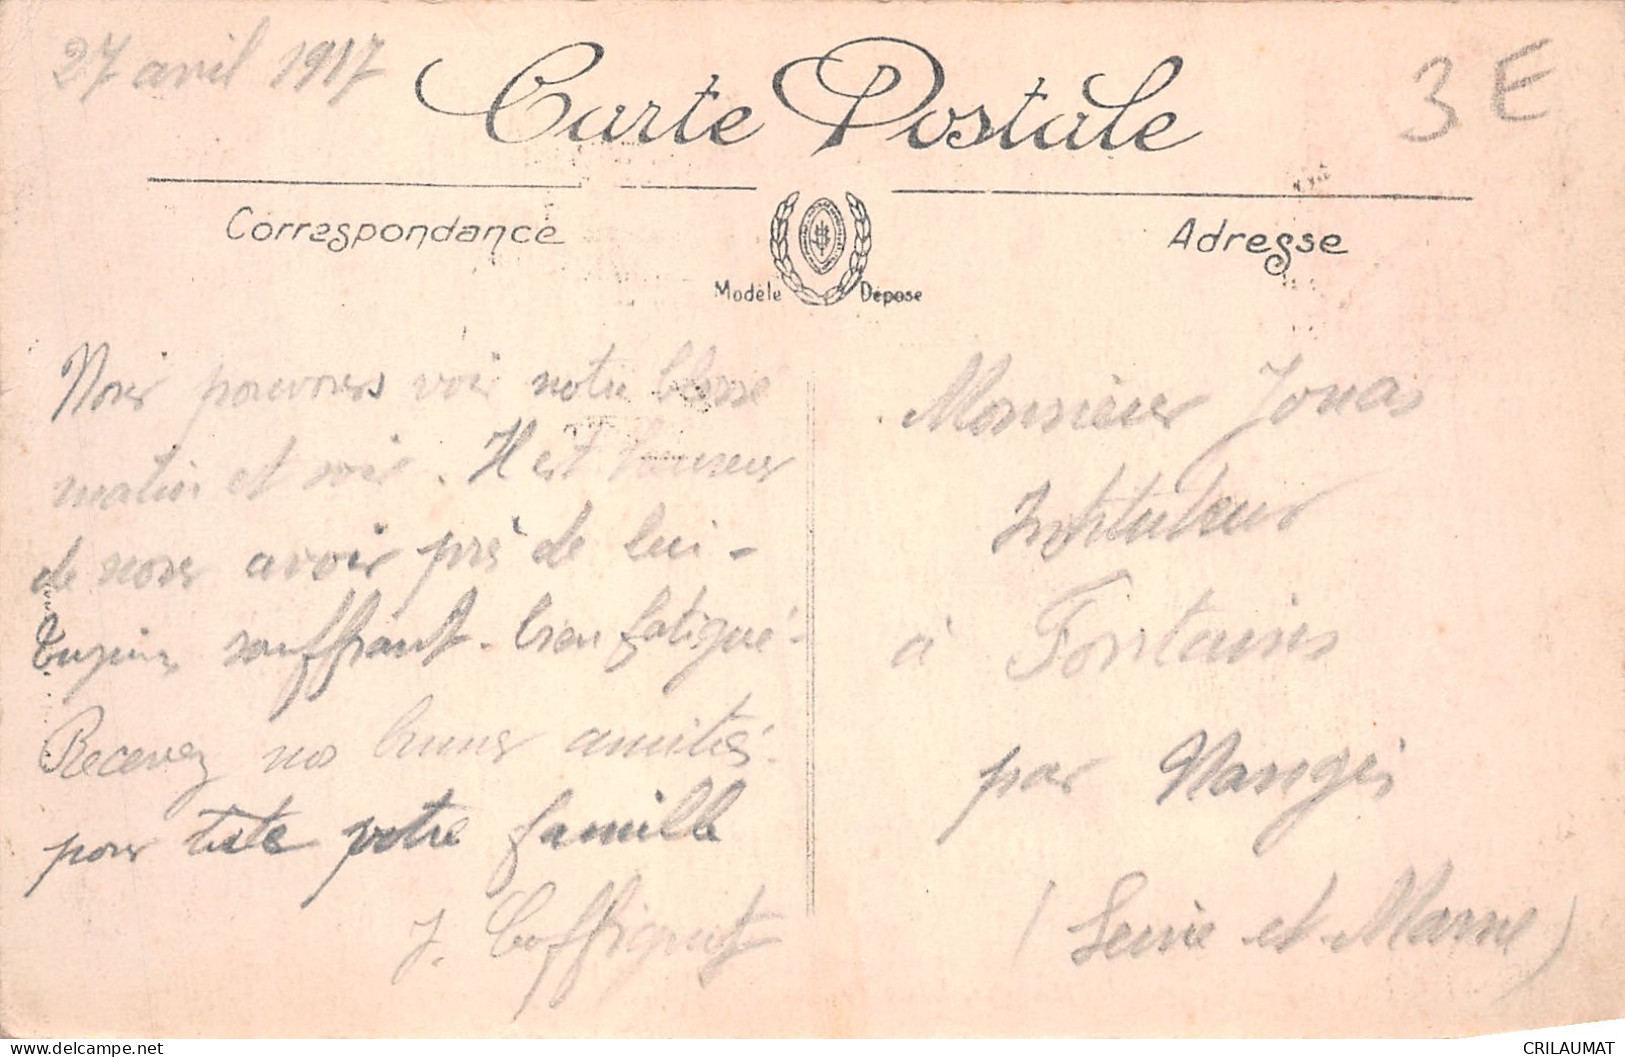 27 avril 1917
3 E
Carte Postale
Correspondance
Adresse
Modèle Déposé
Nous pouvons voir notre blessé
matin et soir. Il est heureux
de nous avoir près de lui -
Toujours souffrant - bien fatigué -
Recevez nos bonnes amitiés
pour toute votre famille
J. Coffignet
Monsieur Jouas
Instituteur
à Fontains
par Nangis
(Seine et Marne)
CRILAUMAT